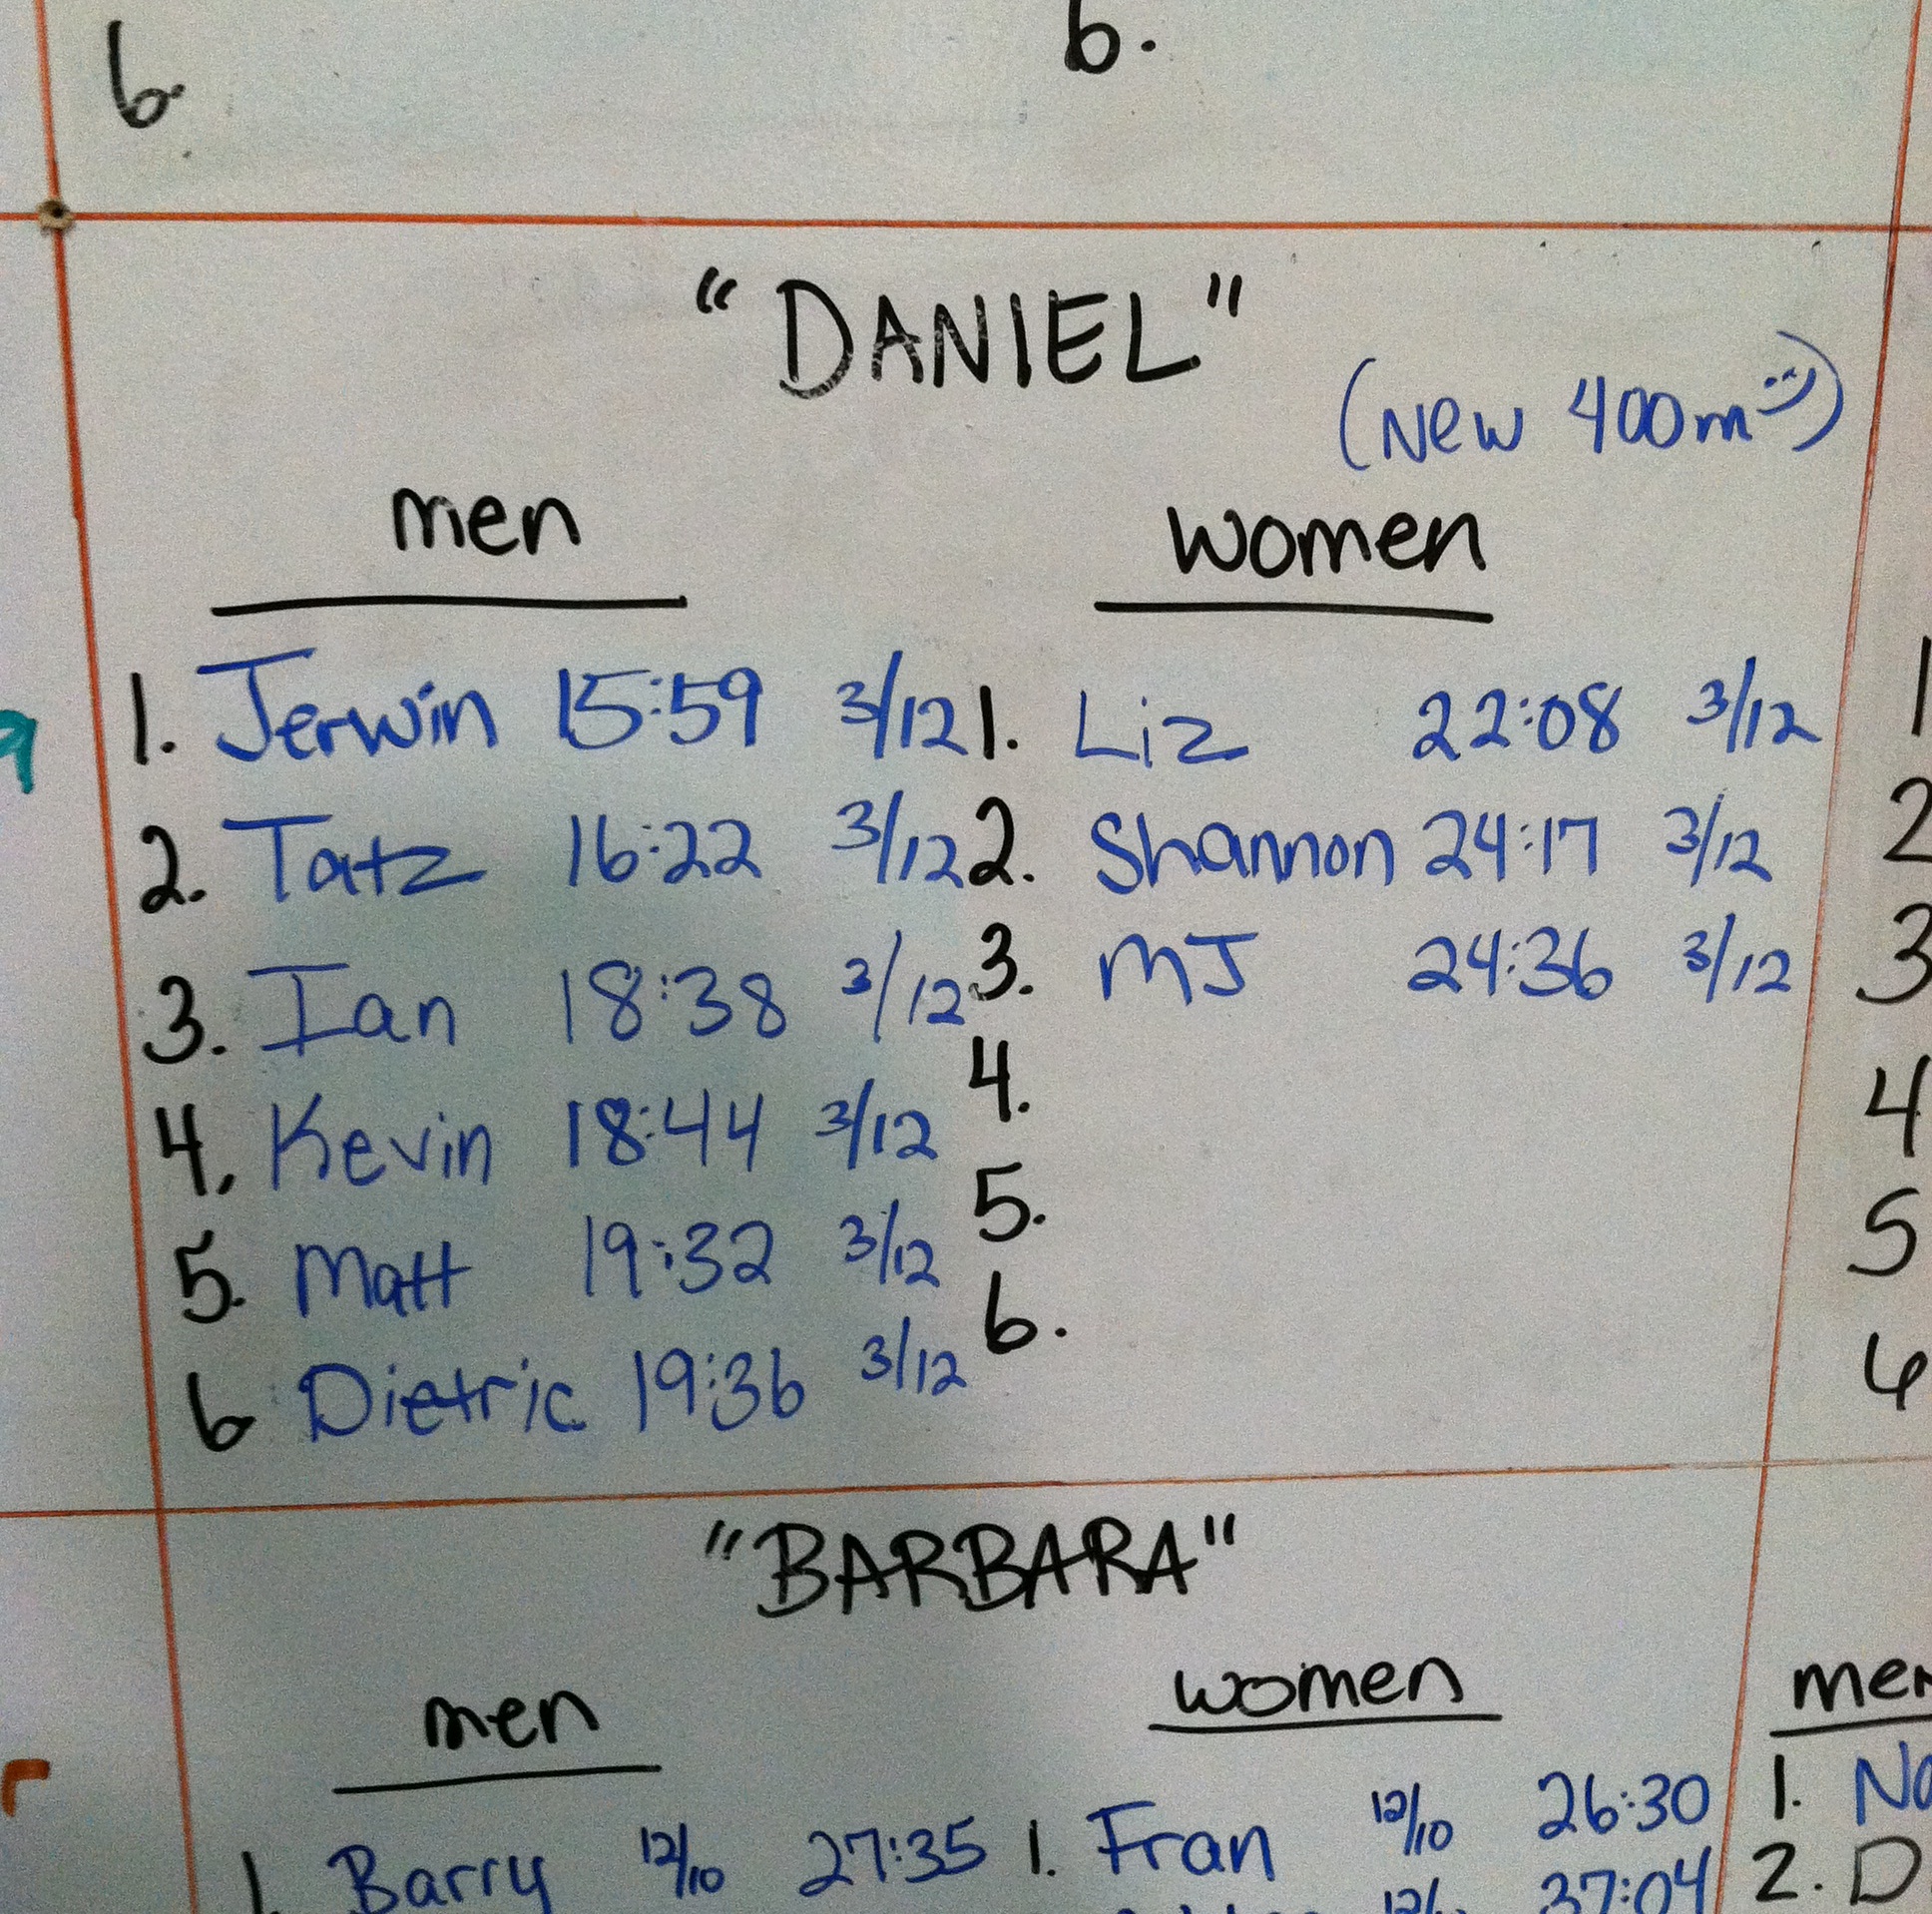 6.
6.
"DANIEL"
(New 400m :))
men
women
1. Jerwin 15:59 3/12
2. Tatz 16:22 3/12
3. Ian 18:38 3/12
4. Kevin 18:44 3/12
5. Matt 19:32 3/12
6 Dietric 19:36 3/12
1. Liz 22:08 3/12
2. Shannon 24:17 3/12
3. MJ 24:36 3/12
4.
5.
6.
1
2
3
4
5
6
"BARBARA"
men
1. Barry 12/10 27:35
women
1. Fran 12/10 26:30
37:04
1.
2.